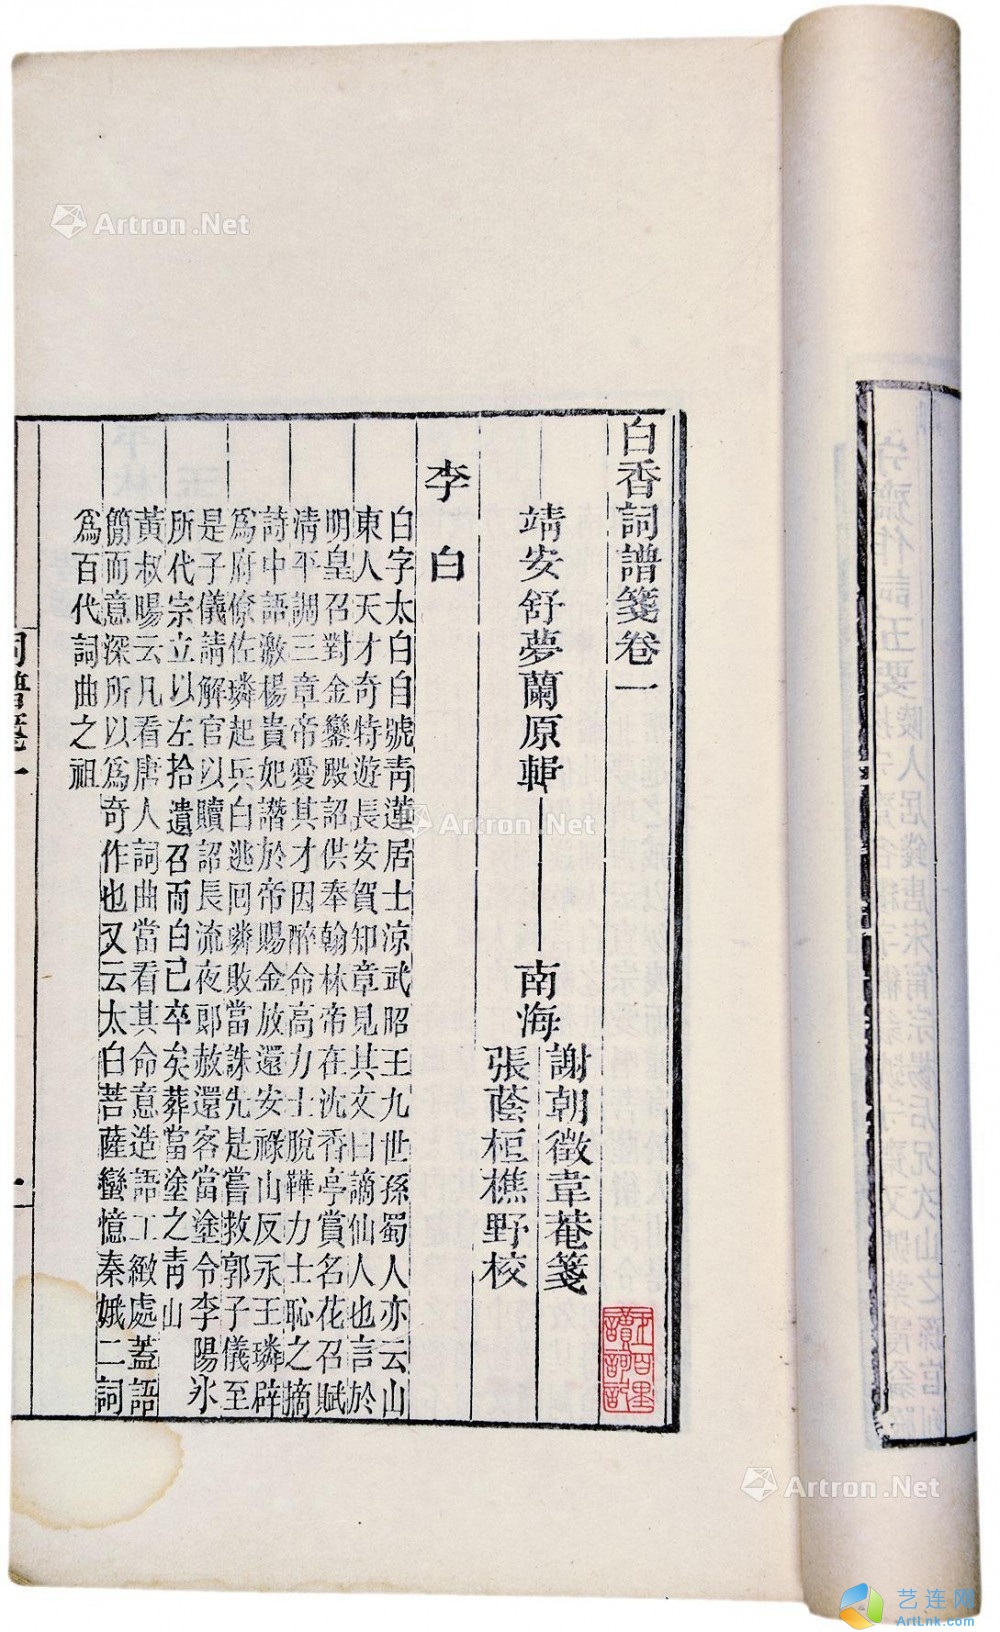 白香詞譜箋卷一
靖安舒夢蘭原輯
南海
謝朝徵韋菴箋
張蔭桓樵野校
李白
白字太白自號青蓮居士涼武昭王九世孫蜀人亦云山
東人天才奇特遊長安賀知章見其文曰謫仙人也言於
明皇召對金鑾殿詔供奉翰林帝在沈香亭賞名花召賦
清平調三章帝愛其才因醉命高力士脫鞾力士恥之摘
詩中語激楊貴妃譖於帝賜金放還安祿山反永王璘辟
爲府僚佐璘起兵白逃回璘敗當誅先是嘗救郭子儀至
是子儀請解官以贖詔長流夜郎赦還客當塗令李陽氷
所代宗立以左拾遺召而白已卒矣葬當塗之青山
黃叔暘云凡看唐人詞曲當看其命意造語工緻處蓋語
簡而意深所以爲奇作也又云太白菩薩蠻憶秦娥二詞
爲百代詞曲之祖
詞譜箋一
一
Artron.Net
Artron.Net
Artron.Net
艺连网
ArtLnk.com